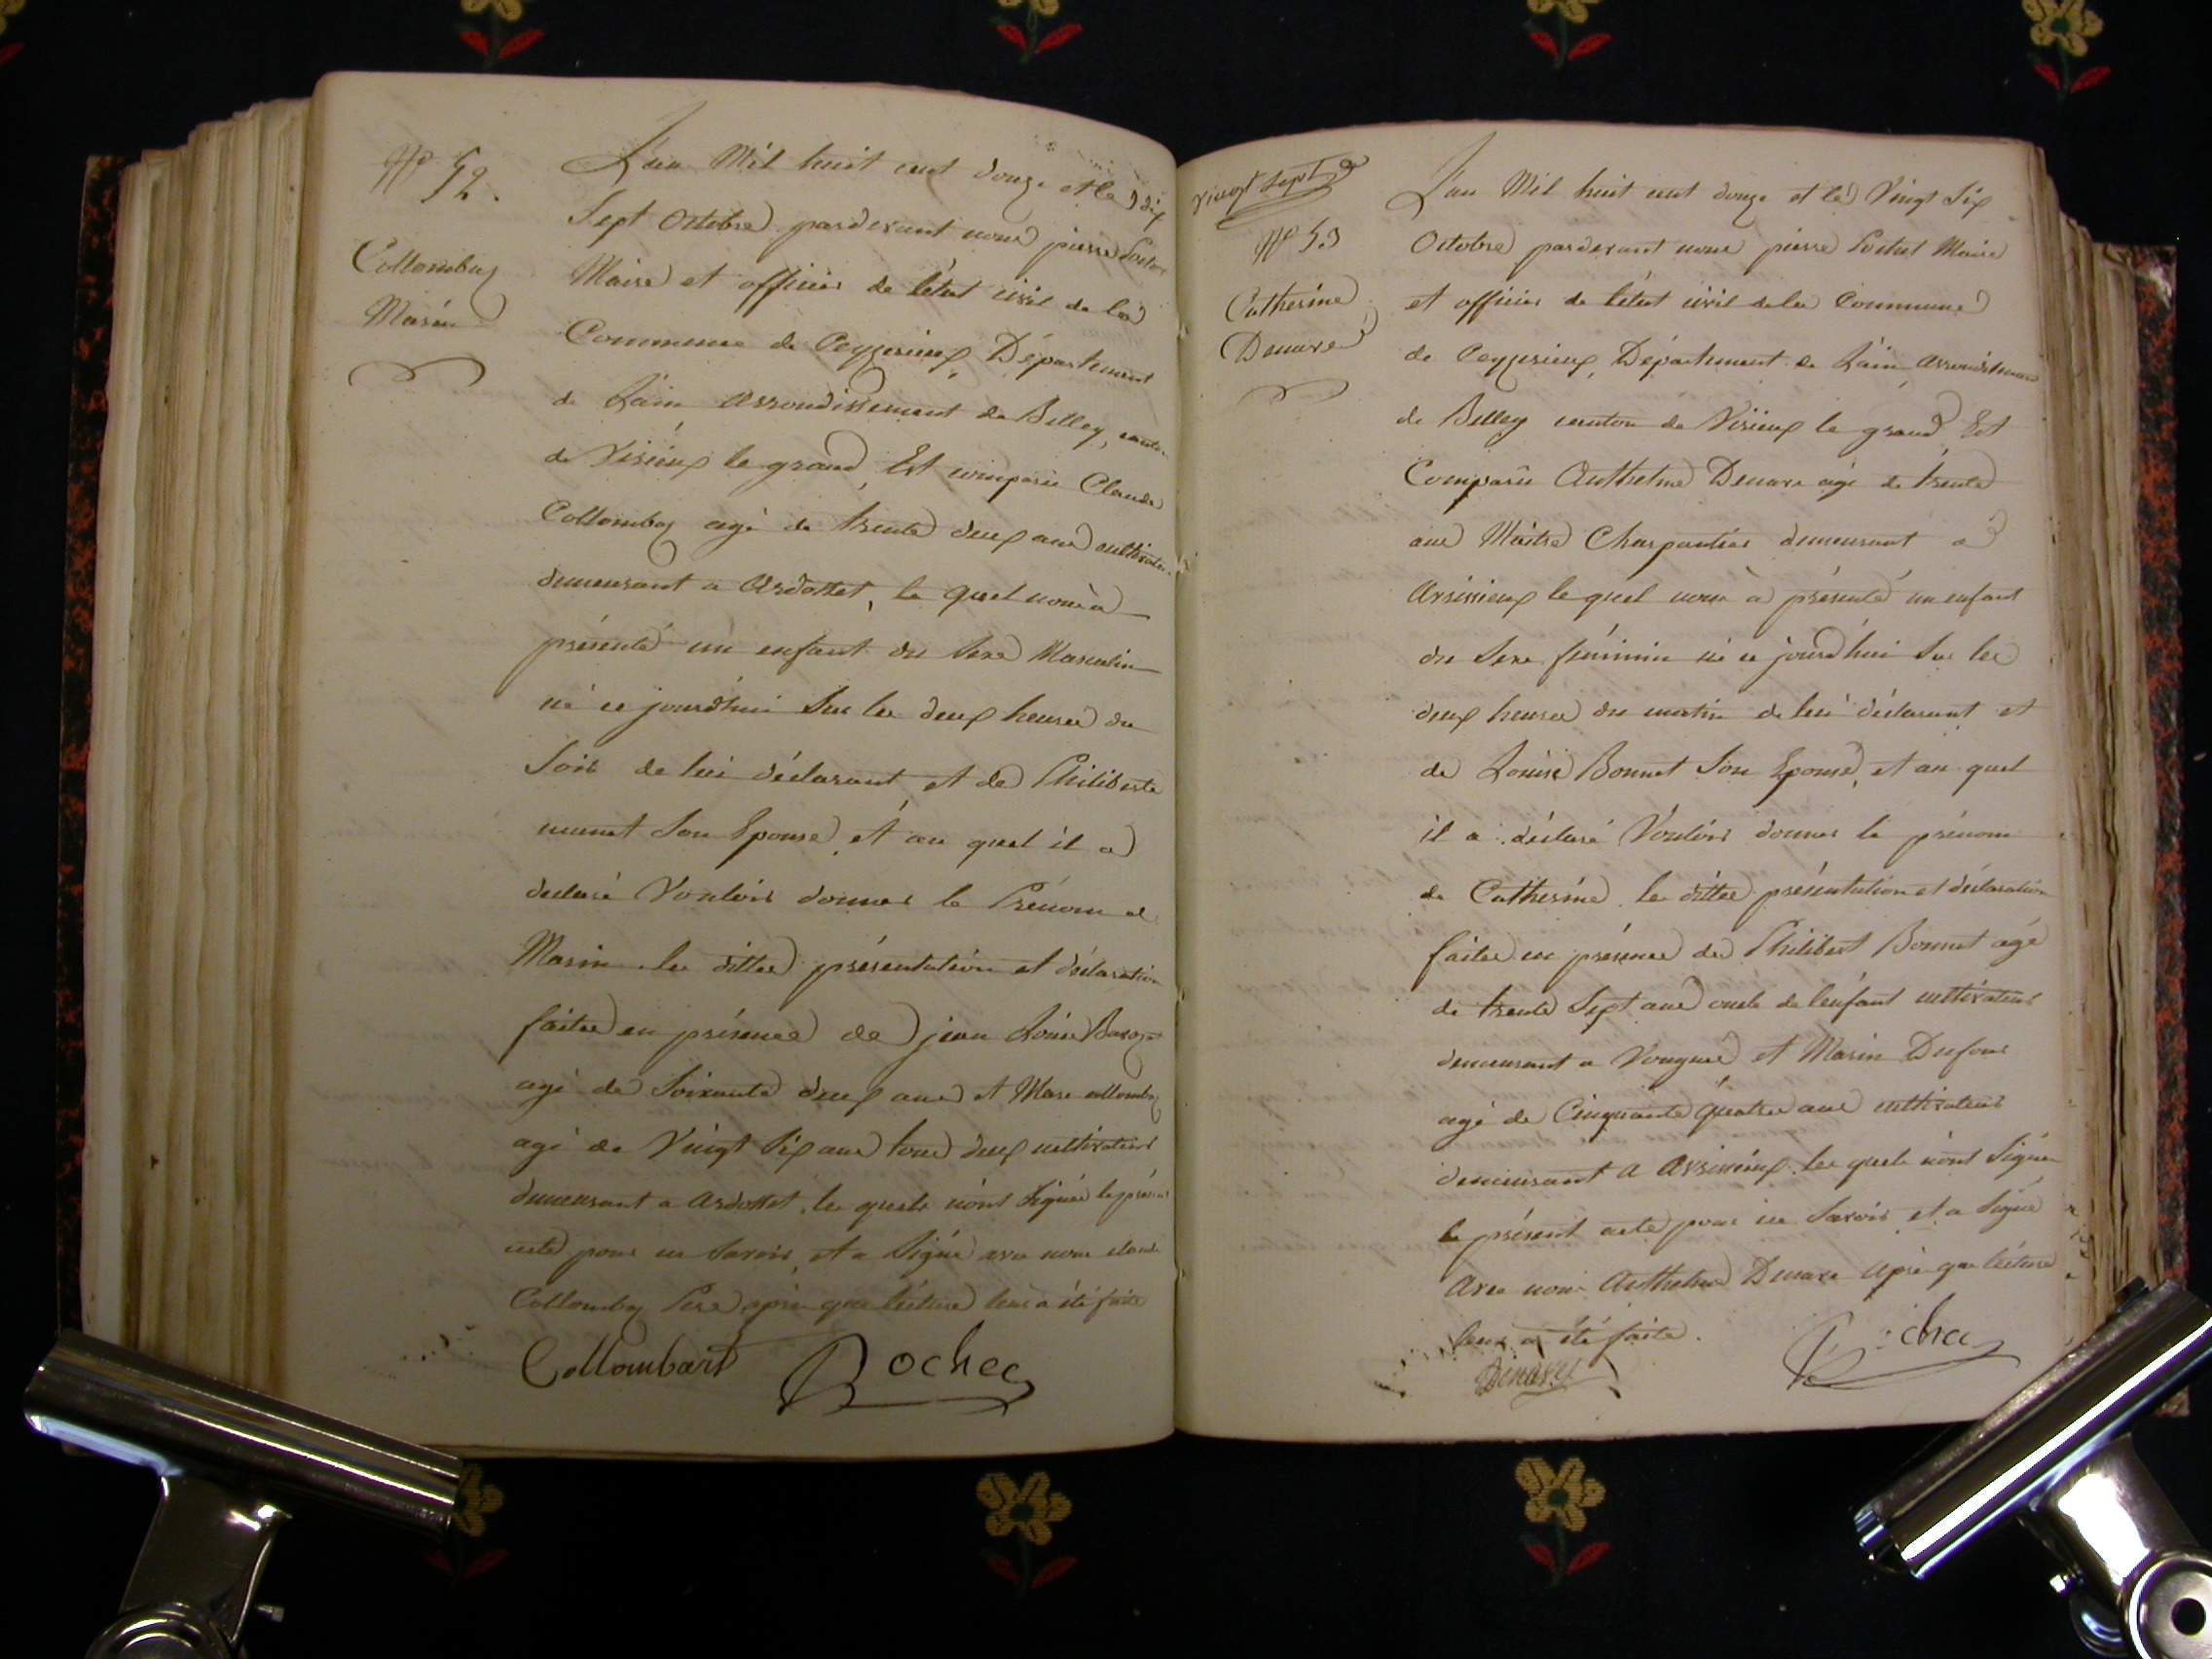 N° 52.
Collomboz
Marin
L'an Mil huit cent douze et le dix
Sept Octobre pardevant nous pierre
Maire et officier de l'état civil de la
Commune de Ceyzerieux, Département
de L'ain arrondissement de Belley, canton
de Virieux le grand, Est comparu Claude
Collomboz agé de trente deux ans cultivateur
demeurant a Ardosset, le quel nous à
présenté un enfant du Sexe Masculin
né ce jourd'hui Sur les deux heures du
Soir de lui déclarant et de Philiberte
Son Epouse, et au quel il a
déclaré Vouloir donner le Prénom de
Marin. les dittes présentation et déclaration
faites en présence de jean Louis
agé de Soixante deux ans et Marc collomboz
agé de Vingt Six ans tous deux cultivateurs
demeurant a ardosset. les quels n'ont Signés le présent
acte pour ne Savoir, et a Signé avec nous claude
Collomboz Pere après que lécture leur a été faite
Collombart Rochet
vingt Sept
N° 53
Catherine
Denare
L'an Mil huit cent douze et le Vingt Six
Octobre pardevant nous pierre Rochet Maire
et officier de l'état civil de la Commune
de Ceyzerieux, Département de L'ain arrondissement
de Belley canton de Virieux le grand Est
Comparu Anthelme Denare agé de trente
ans Maitre Charpentier demeurant à
Avrissieux le quel nous à présenté un enfant
du Sexe féminin né ce jourd'hui Sur les
deux heures du matin de lui déclarant et
de Louise Bonnet Son Epouse, et au quel
il a déclaré Vouloir donner le prénom
de Catherine. les dittes présentation et déclaration
faites en présence de Philibert Bonnet agé
de trente Sept ans oncle de l'enfant cultivateur
demeurant a Vongnes et Marin Dufour
agé de Cinquante quatre ans cultivateur
demeurant a avrissieux. les quels n'ont Signés
le présent acte pour ne Savoir et a Signé
avec nous Anthelme Denare après que lécture
leur a été faite.
Denare Rochet